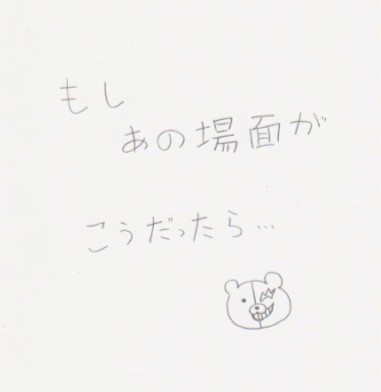 もし
あの場面が
こうだったら…